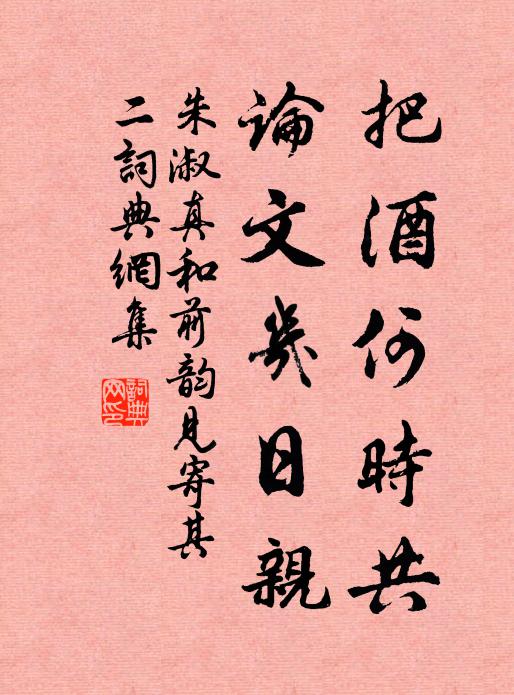 把酒何時共
論文幾日親
朱淑真和前韵見寄其
二詞典網集
詞典網印